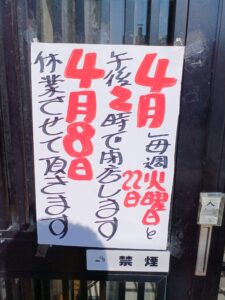 4月 毎週火曜日と
22日
午後2時で閉店します
4月8日
休業させて頂きます
禁煙